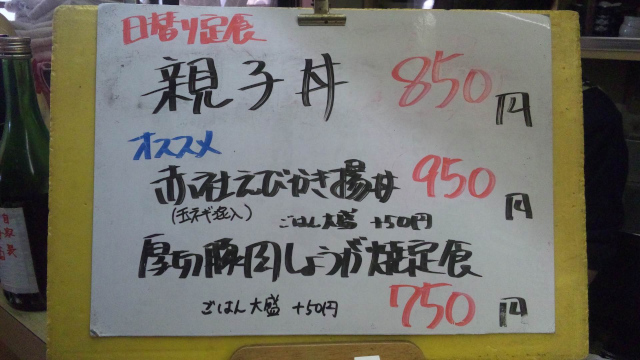 日替り定食
親子丼 850円
オススメ
赤社えびかき揚丼 950円
(玉ネギ込入)
ごはん大盛 +50円
厚切豚肉しょうが焼定食
ごはん大盛 +50円 750円